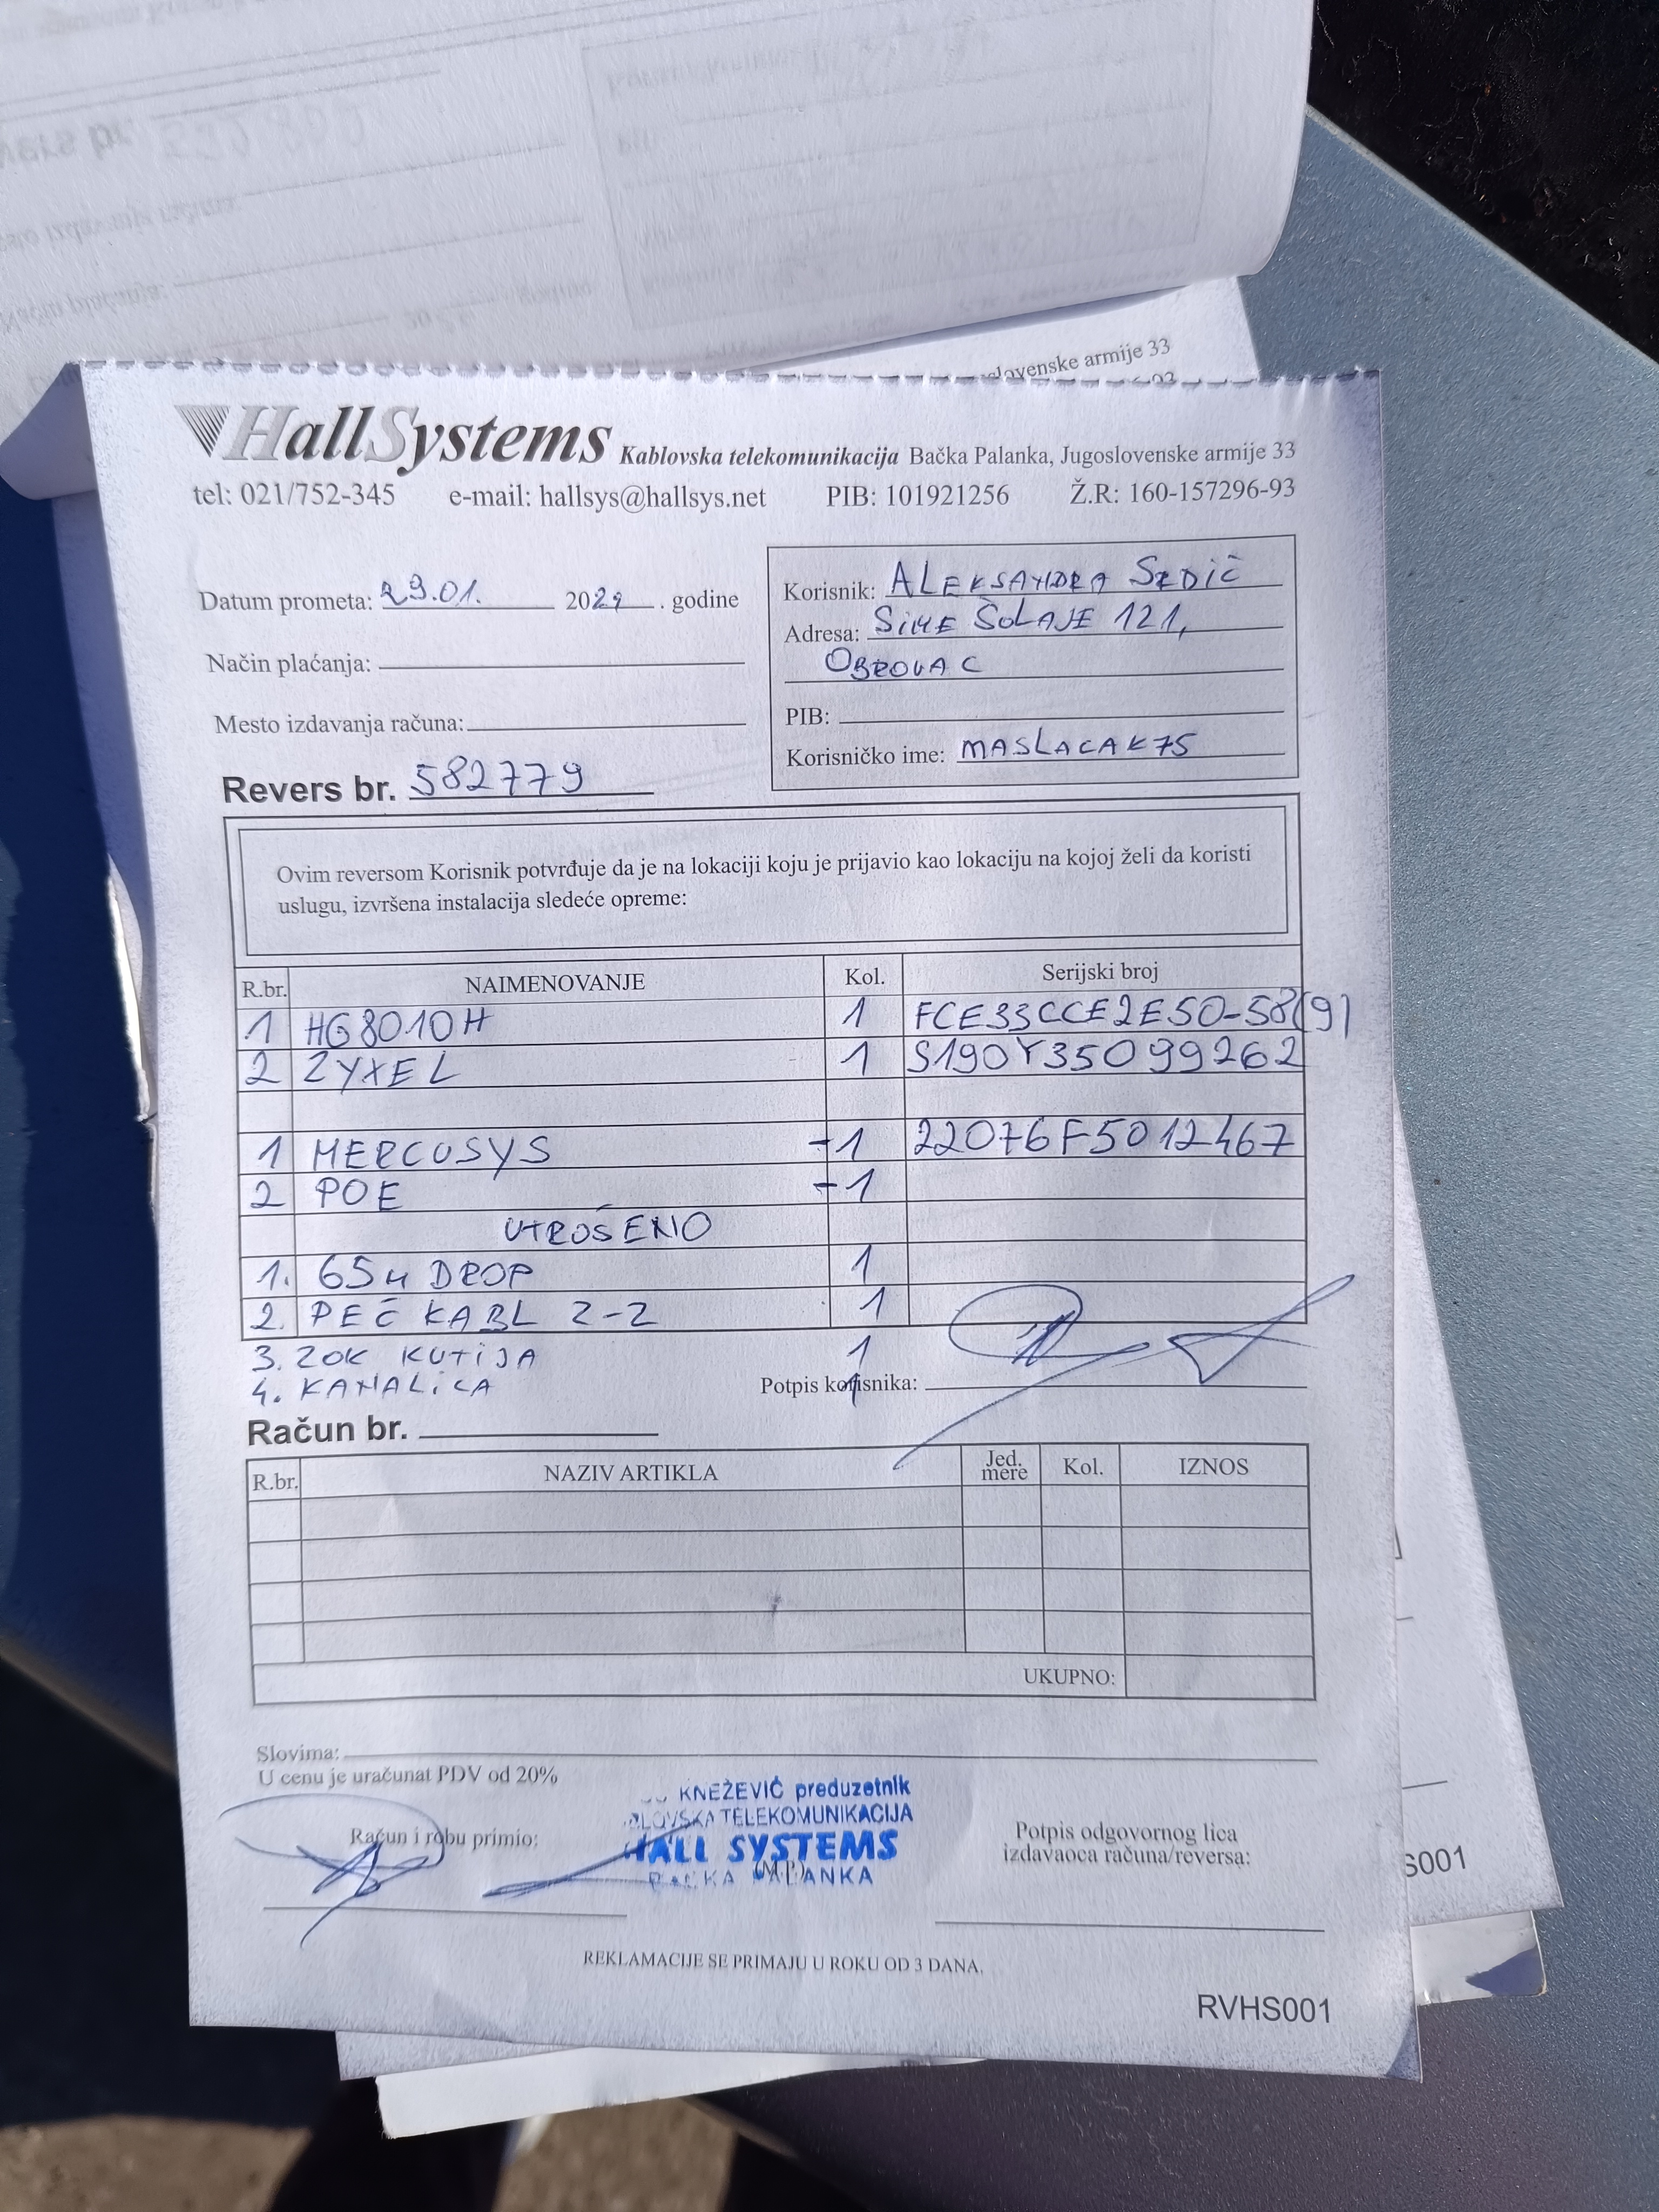 slovenske armije 33
HallSystems Kablovska telekomunikacija Bačka Palanka, Jugoslovenske armije 33
tel: 021/752-345 e-mail: hallsys@hallsys.net PIB: 101921256 Ž.R: 160-157296-93
Datum prometa: 29.01. 2024. godine
Način plaćanja:
Mesto izdavanja računa:
Revers br. 582779
Korisnik: ALEKSANDRA SRDIĆ
Adresa: SIME ŠOLAJE 121,
OBROVAC
PIB:
Korisničko ime: MASLACAK75
Ovim reversom Korisnik potvrđuje da je na lokaciji koju je prijavio kao lokaciju na kojoj želi da koristi
uslugu, izvršena instalacija sledeće opreme:
R.br. NAIMENOVANJE Kol. Serijski broj
1 HG8010H 1 FCE33CCE2E50-58(9)
2 ZYXEL 1 S190Y35099262
1 MERCUSYS -1 22076F5012467
2 POE -1
UTROŠENO
1. 65m DROP 1
2. PEČ KABL 2-2 1
3. ZOK KUTIJA 1
4. KANALICA 1
Potpis korisnika:
Račun br.
R.br. NAZIV ARTIKLA Jed. mere Kol. IZNOS
UKUPNO:
Slovima:
U cenu je uračunat PDV od 20%
KNEŽEVIĆ preduzetnik
TELEKOMUNIKACIJA
HALL SYSTEMS
PALANKA
(M.P.)
Račun i robu primio:
Potpis odgovornog lica
izdavaoca računa/reversa:
REKLAMACIJE SE PRIMAJU U ROKU OD 3 DANA.
RVHS001
S001